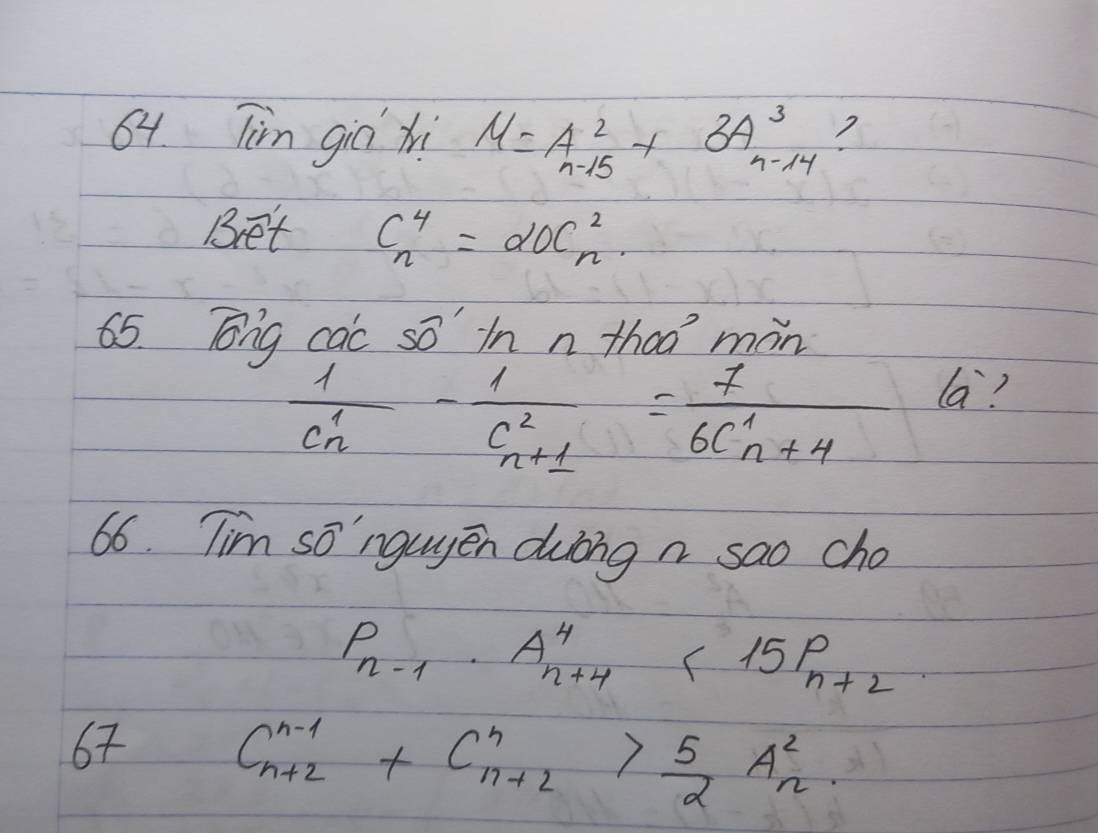 64. Tìm giá trị M = A²ₙ₋₁₅ + 3A³ₙ₋₁₄ ?
Biết C⁴ₙ = 20C²ₙ.
65. Tổng các số tn n thoả mãn
1/C¹ₙ - 1/C²ₙ₊₁ = 7/6C¹ₙ₊₄ là?
66. Tìm số nguyên dương n sao cho
Pₙ₋₁ . A⁴ₙ₊₄ < 15Pₙ₊₂.
67 Cⁿ⁻¹ₙ₊₂ + Cⁿₙ₊₂ > 5/2 A²ₙ.